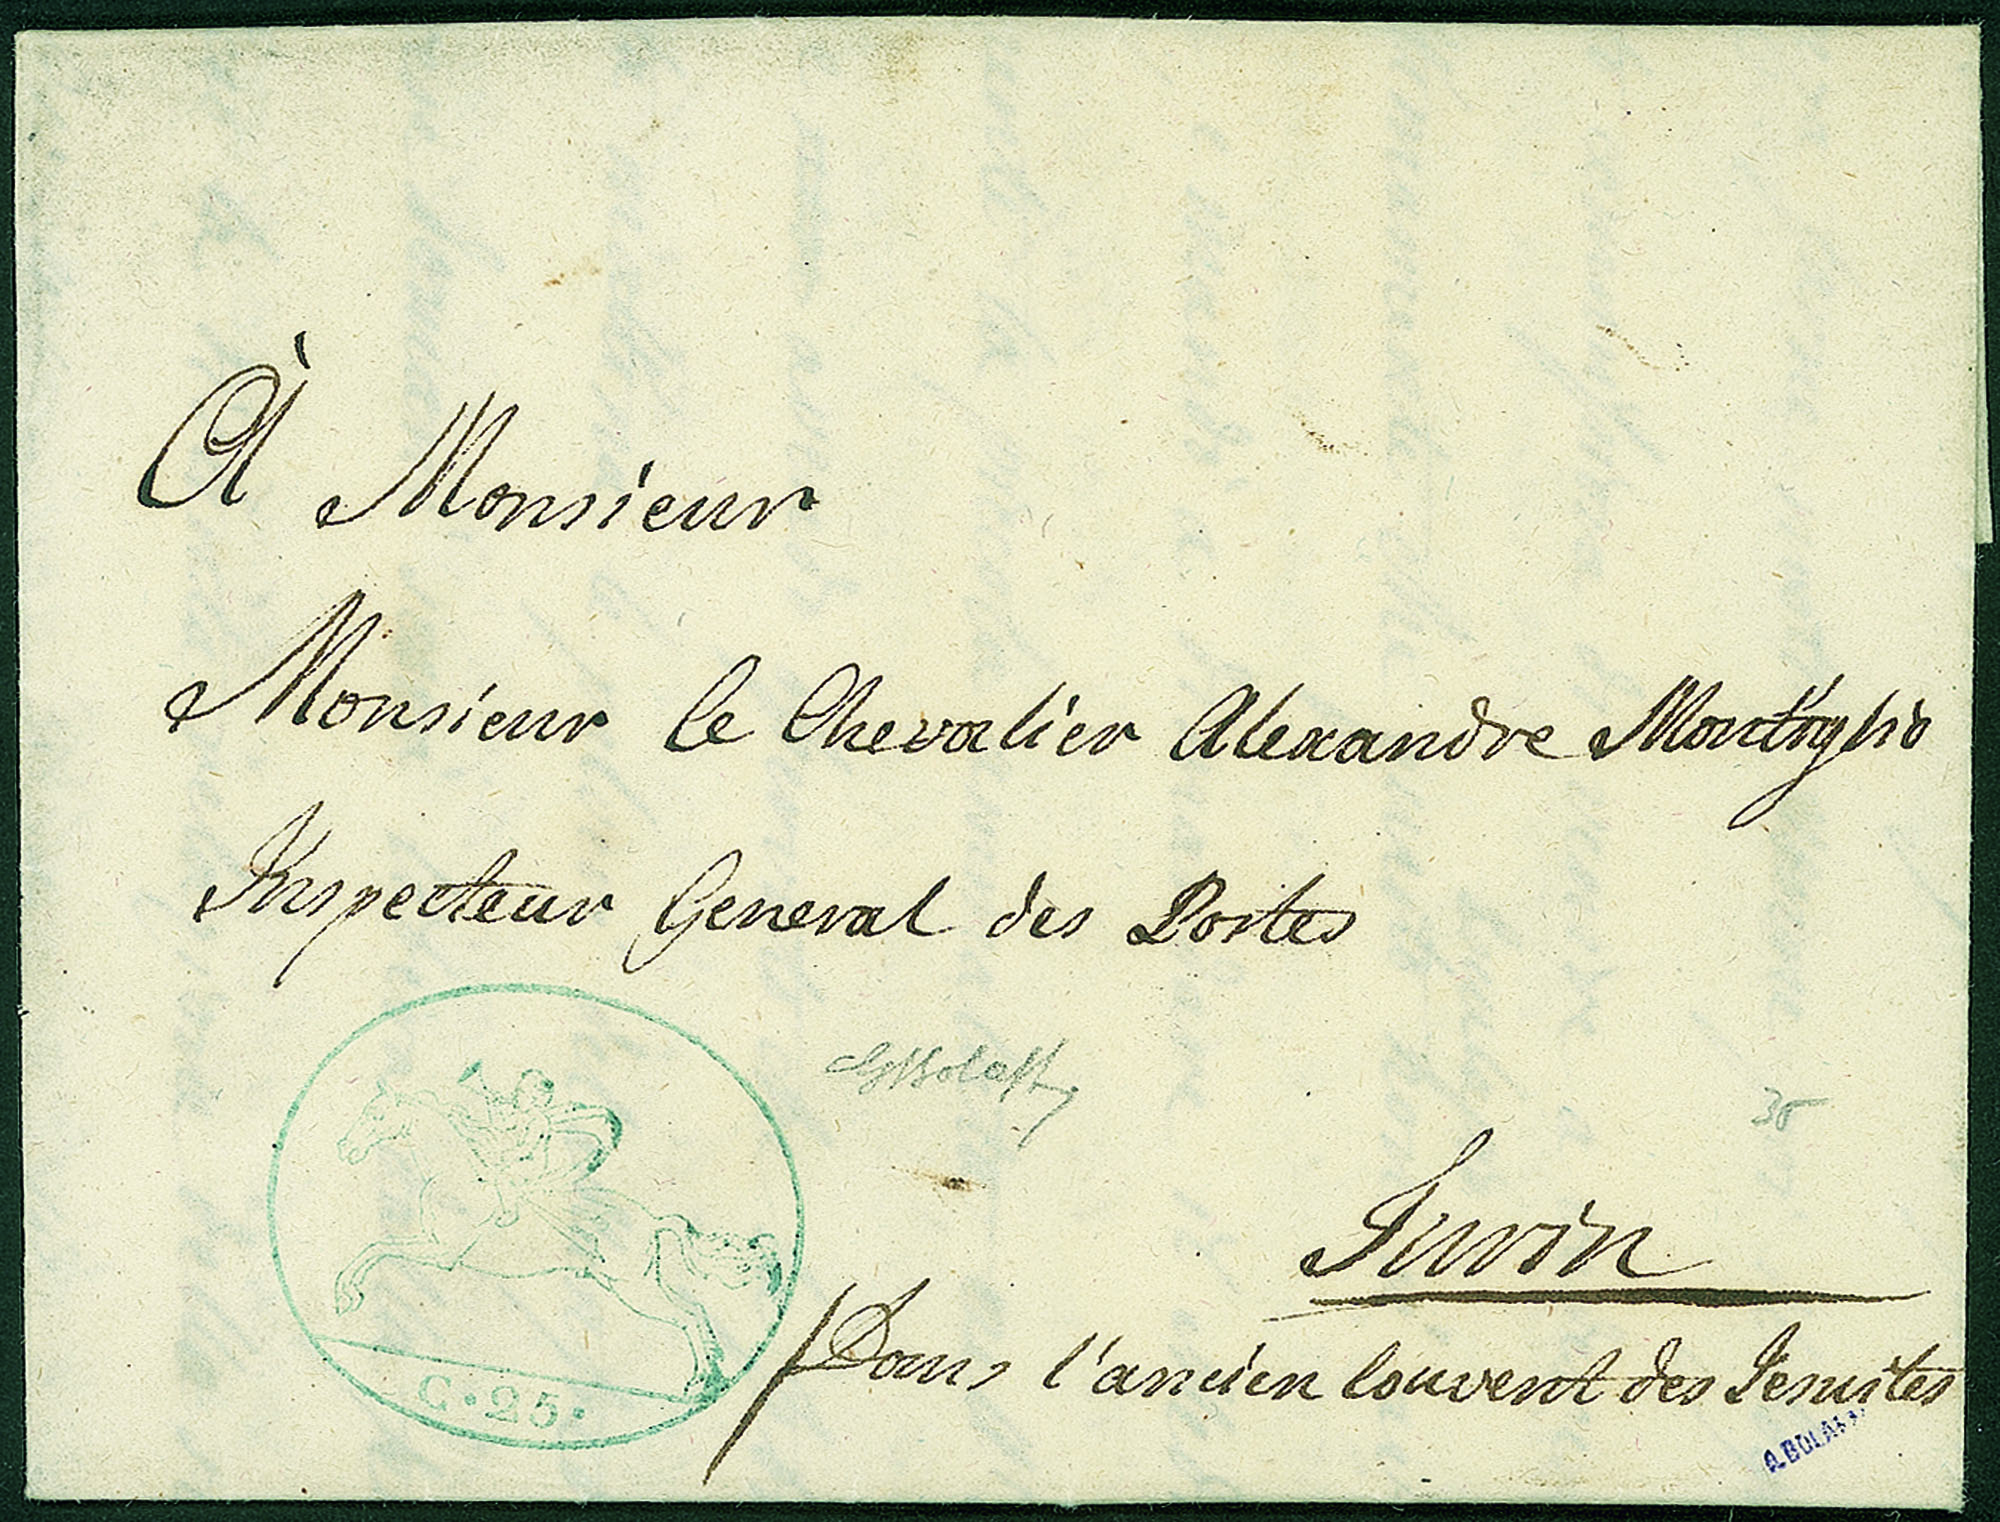 À Monsieur
Monsieur le Chevalier Alexandre Montiglio
Inspecteur General des Postes
C. 25.
35
Turin
Dans l'ancien Couvent des Jesuites
A. BOLAFFI